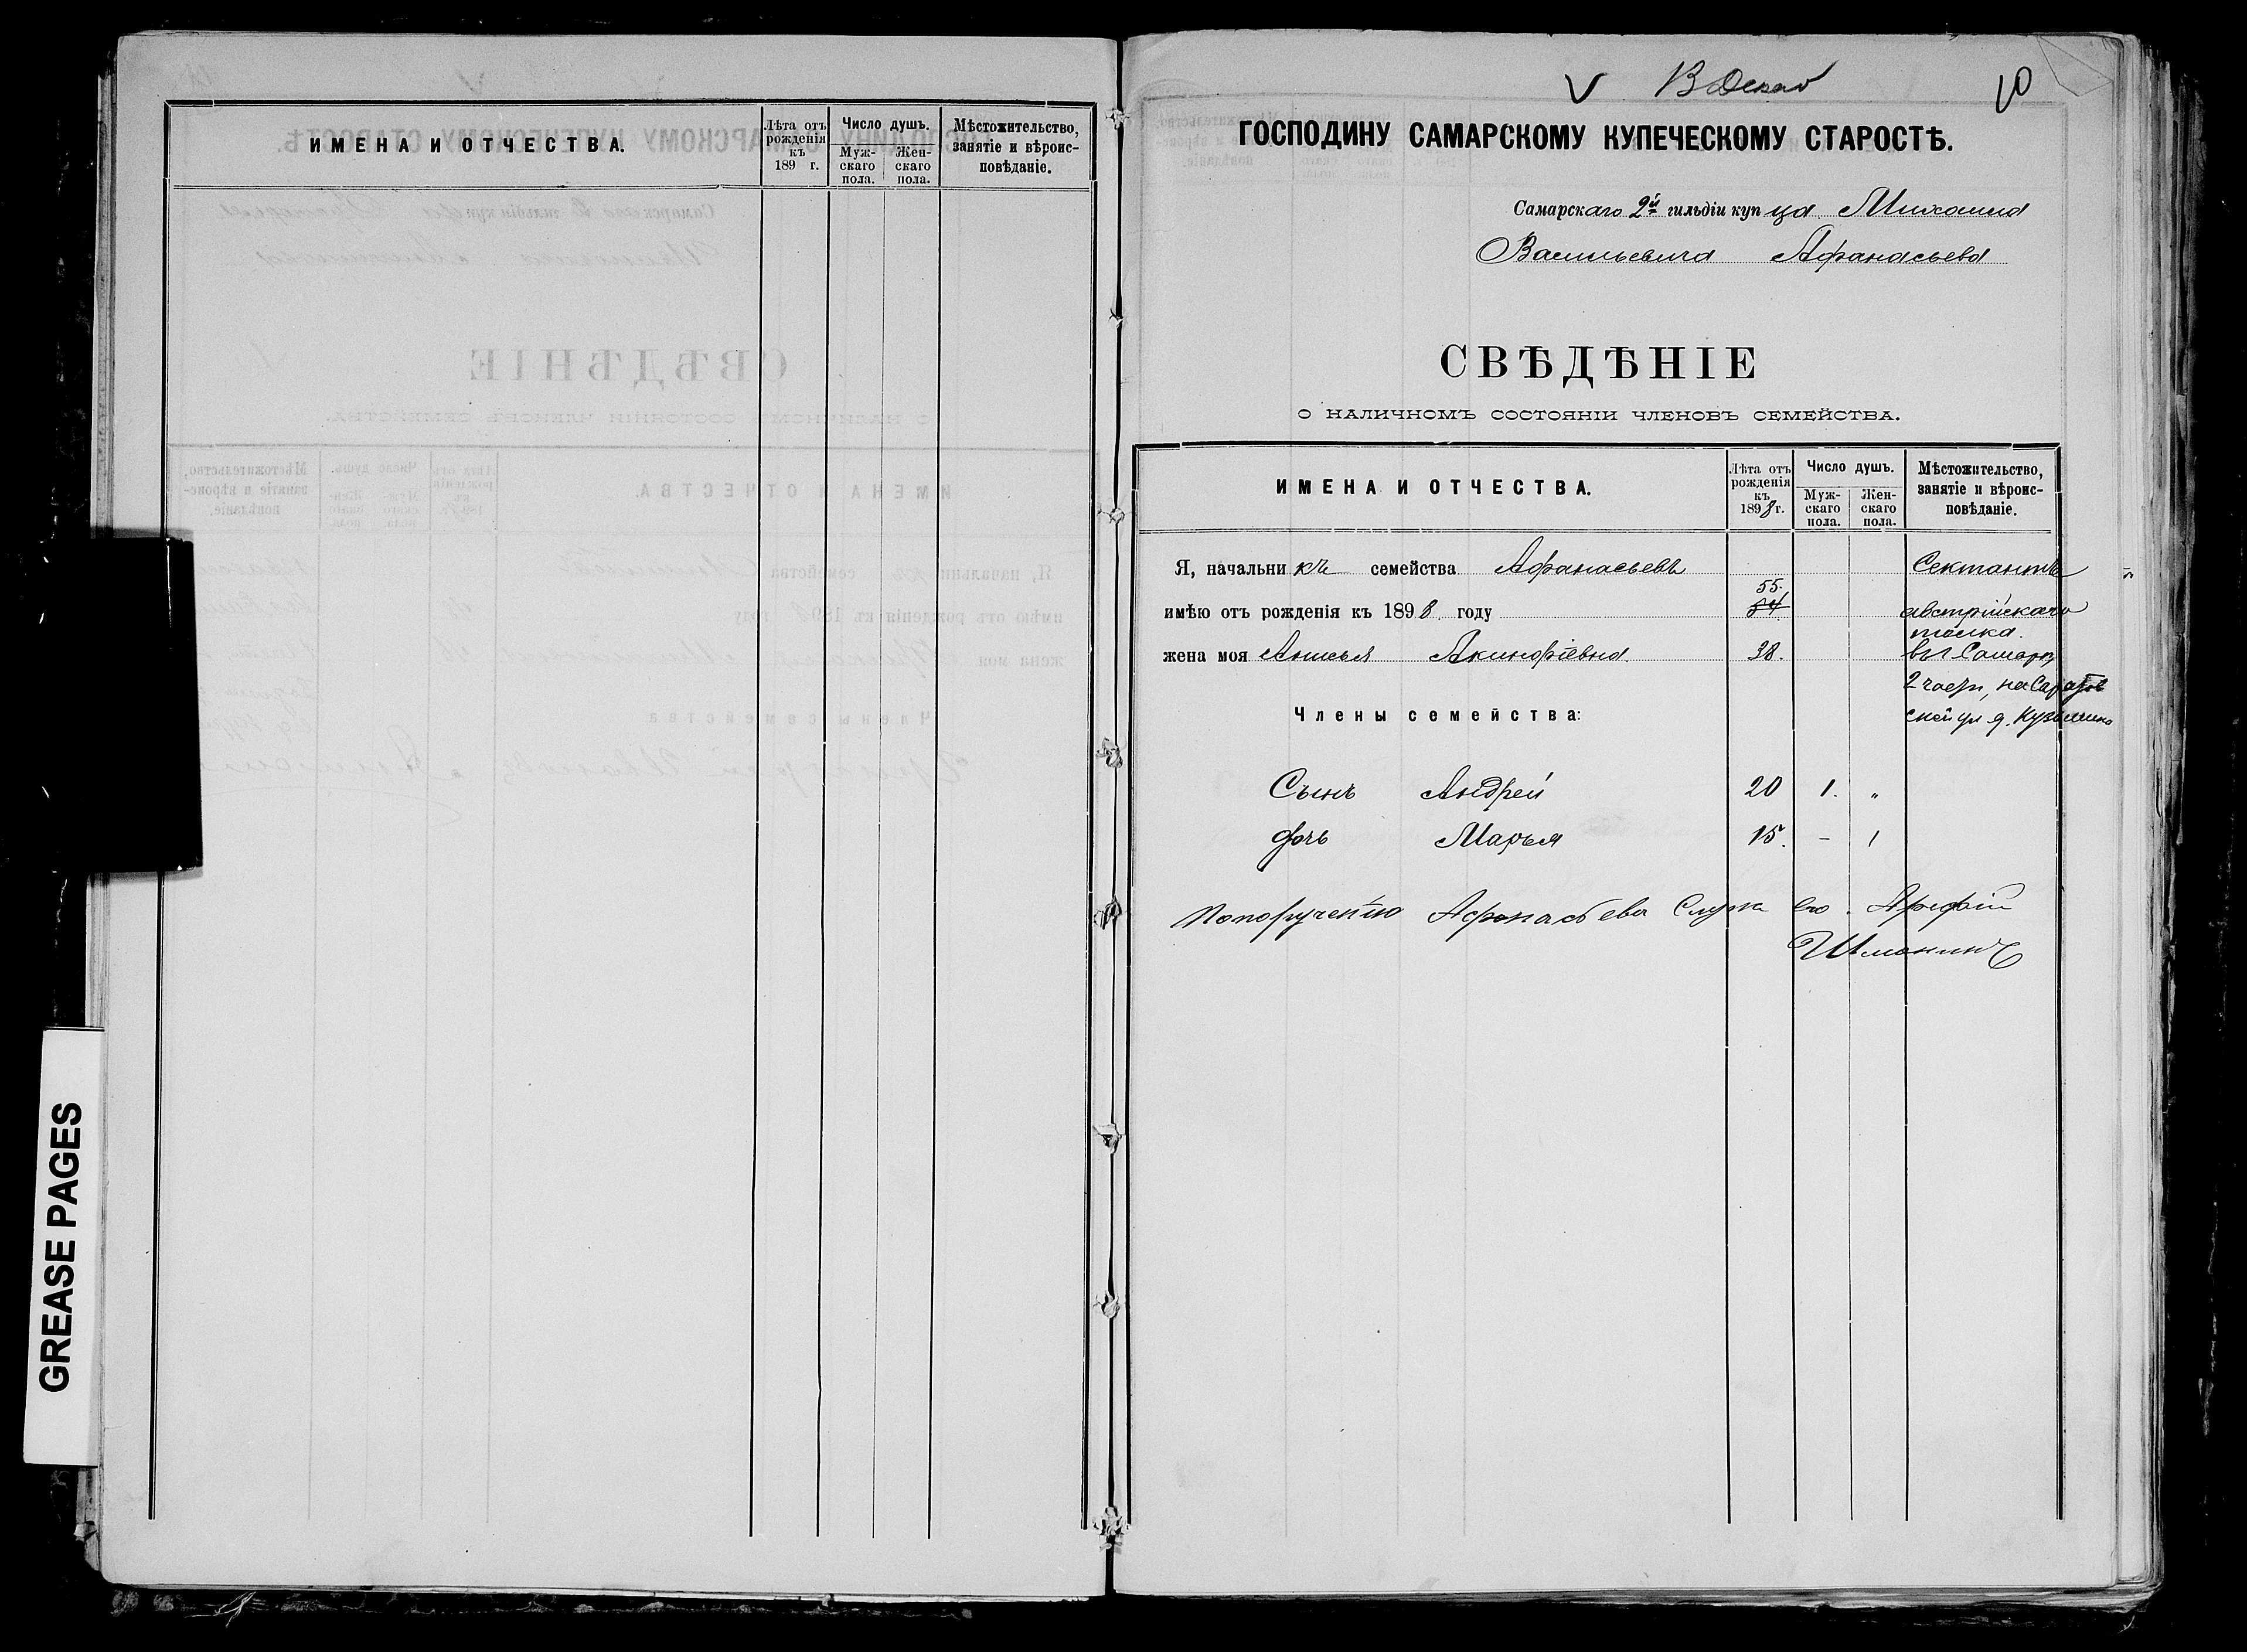 GREASE PAGES
ИМЕНА И ОТЧЕСТВА.
Лѣта отъ рожденія къ 189 г.
Число душъ.
Муж- скаго пола.
Жен- скаго пола.
Мѣстожительство, занятіе и вѣроис- повѣданіе.
10
ГОСПОДИНУ САМАРСКОМУ КУПЕЧЕСКОМУ СТАРОСТѢ.
Самарскаго 2й гильдіи купца Михаила
Васильевича Афанасьева
СВѢДѢНІЕ
О НАЛИЧНОМЪ СОСТОЯНІИ ЧЛЕНОВЪ СЕМЕЙСТВА.
ИМЕНА И ОТЧЕСТВА.
Лѣта отъ рожденія къ 1898 г.
Число душъ.
Муж- скаго пола.
Жен- скаго пола.
Мѣстожительство, занятіе и вѣроис- повѣданіе.
Я, начальникъ семейства Афанасьевъ
имѣю отъ рожденія къ 1898 году 55. 54
жена моя Анисья Акинфіевна 38.
Сектантъ
австрійскаго
толка.
въ г. Самарѣ
2 части, на Саратов
ской ул д. Кузьмина
Члены семейства:
Сынъ Андрей 20 1. „
дочь Марья 15. – 1
По порученію Афанасьева Арефій